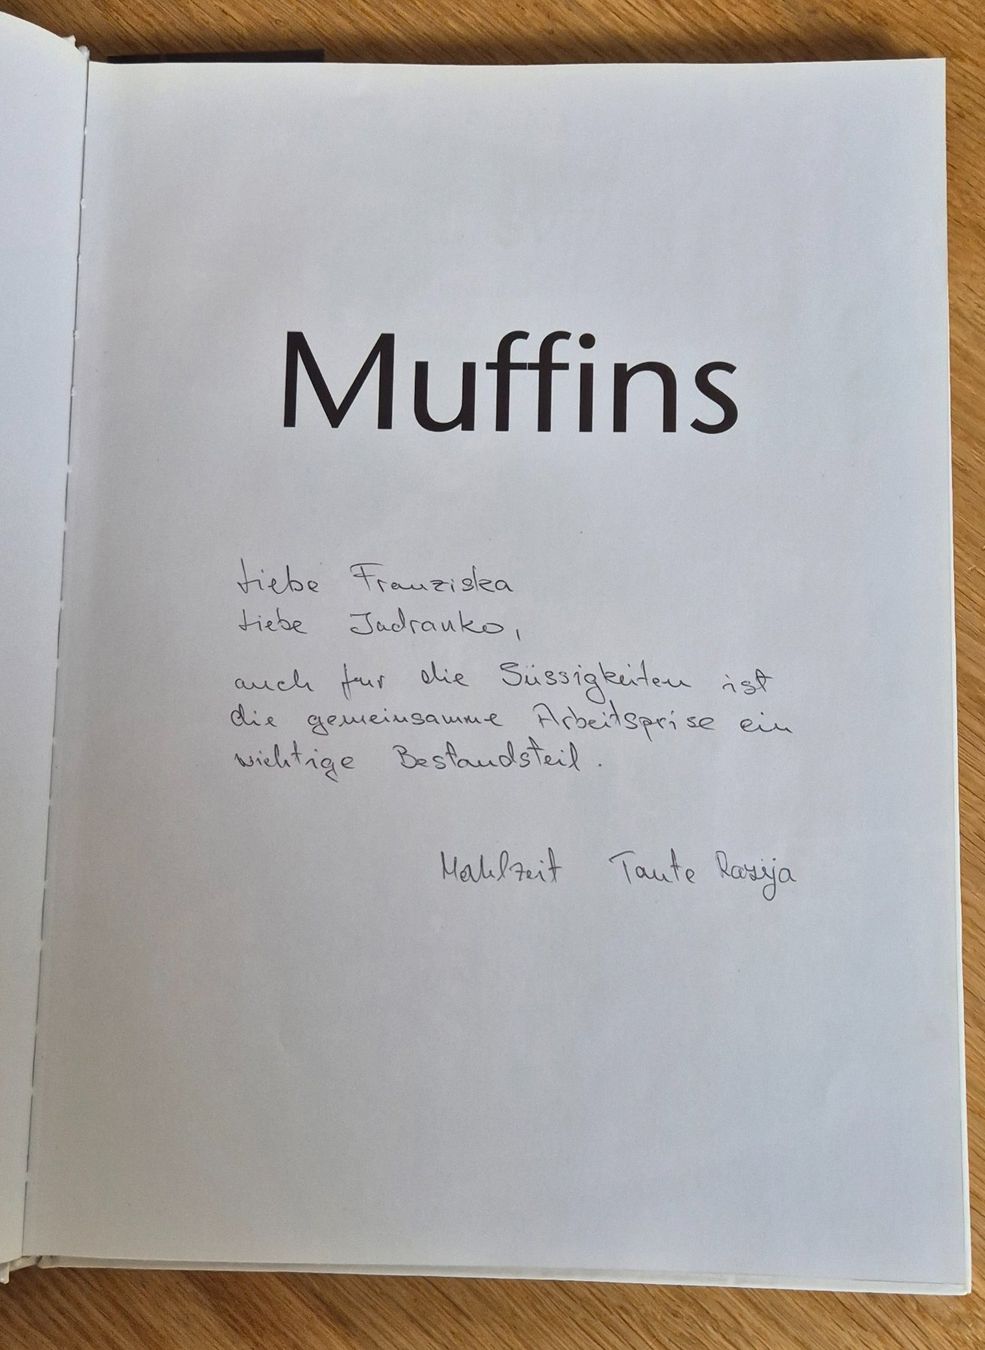 Muffins
Liebe Franziska
Liebe Jadranko,
auch fur die Süssigkeiten ist
die gemeinsamme Arbeitsprise ein
wichtige Bestandsteil.
Mahlzeit Tante